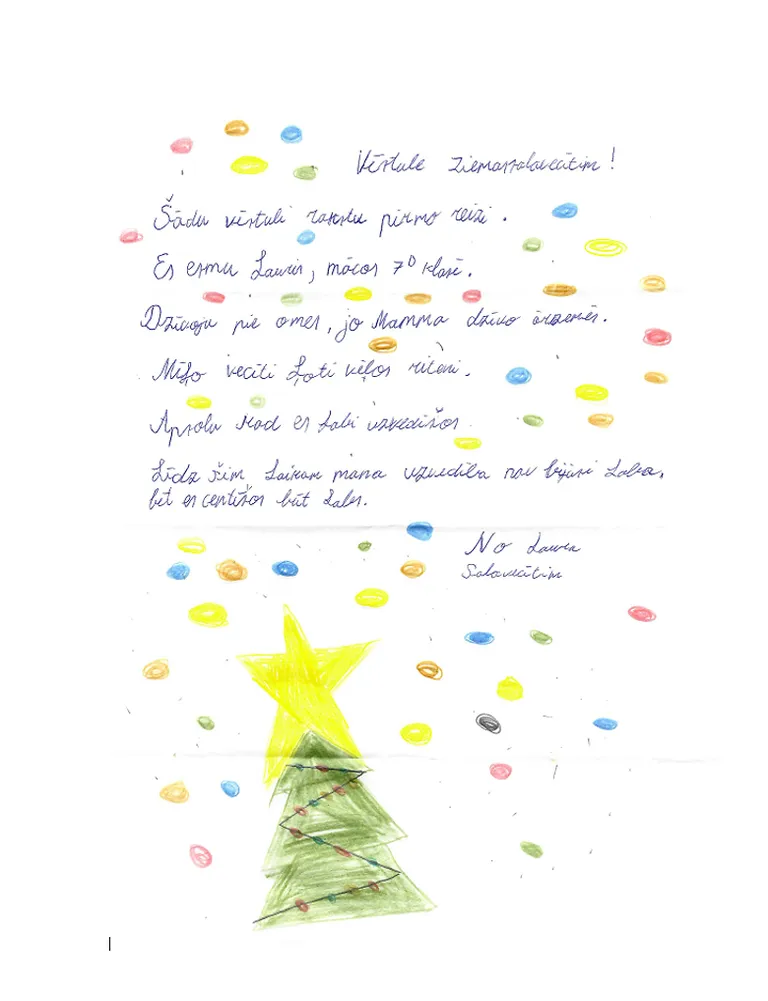 Vēstule ziemassalavecītim!
Šādu vēstuli rakstu pirmo reizi.
Es esmu Lauris, mācos 7D klasē.
Dzīvoju pie omes, jo Mamma dzīvo ārzemēs.
Mīļo vecīti Ļoti vēlos riteni.
Apsolu kad es Labi uzvedīšos
Līdz šim, Laikam mana uzvedība nav bijusi Laba,
bet es centīšos būt Labs.
No Laura
Salavecītim